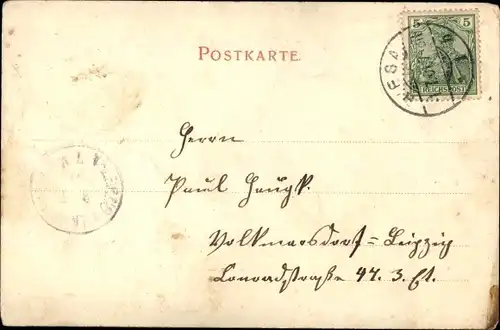 POSTKARTE
5 5
REICHSPOST
Herrn
Paul
Volkmarsdorf=Leipzig
Conradstraße 47. 3. Et.